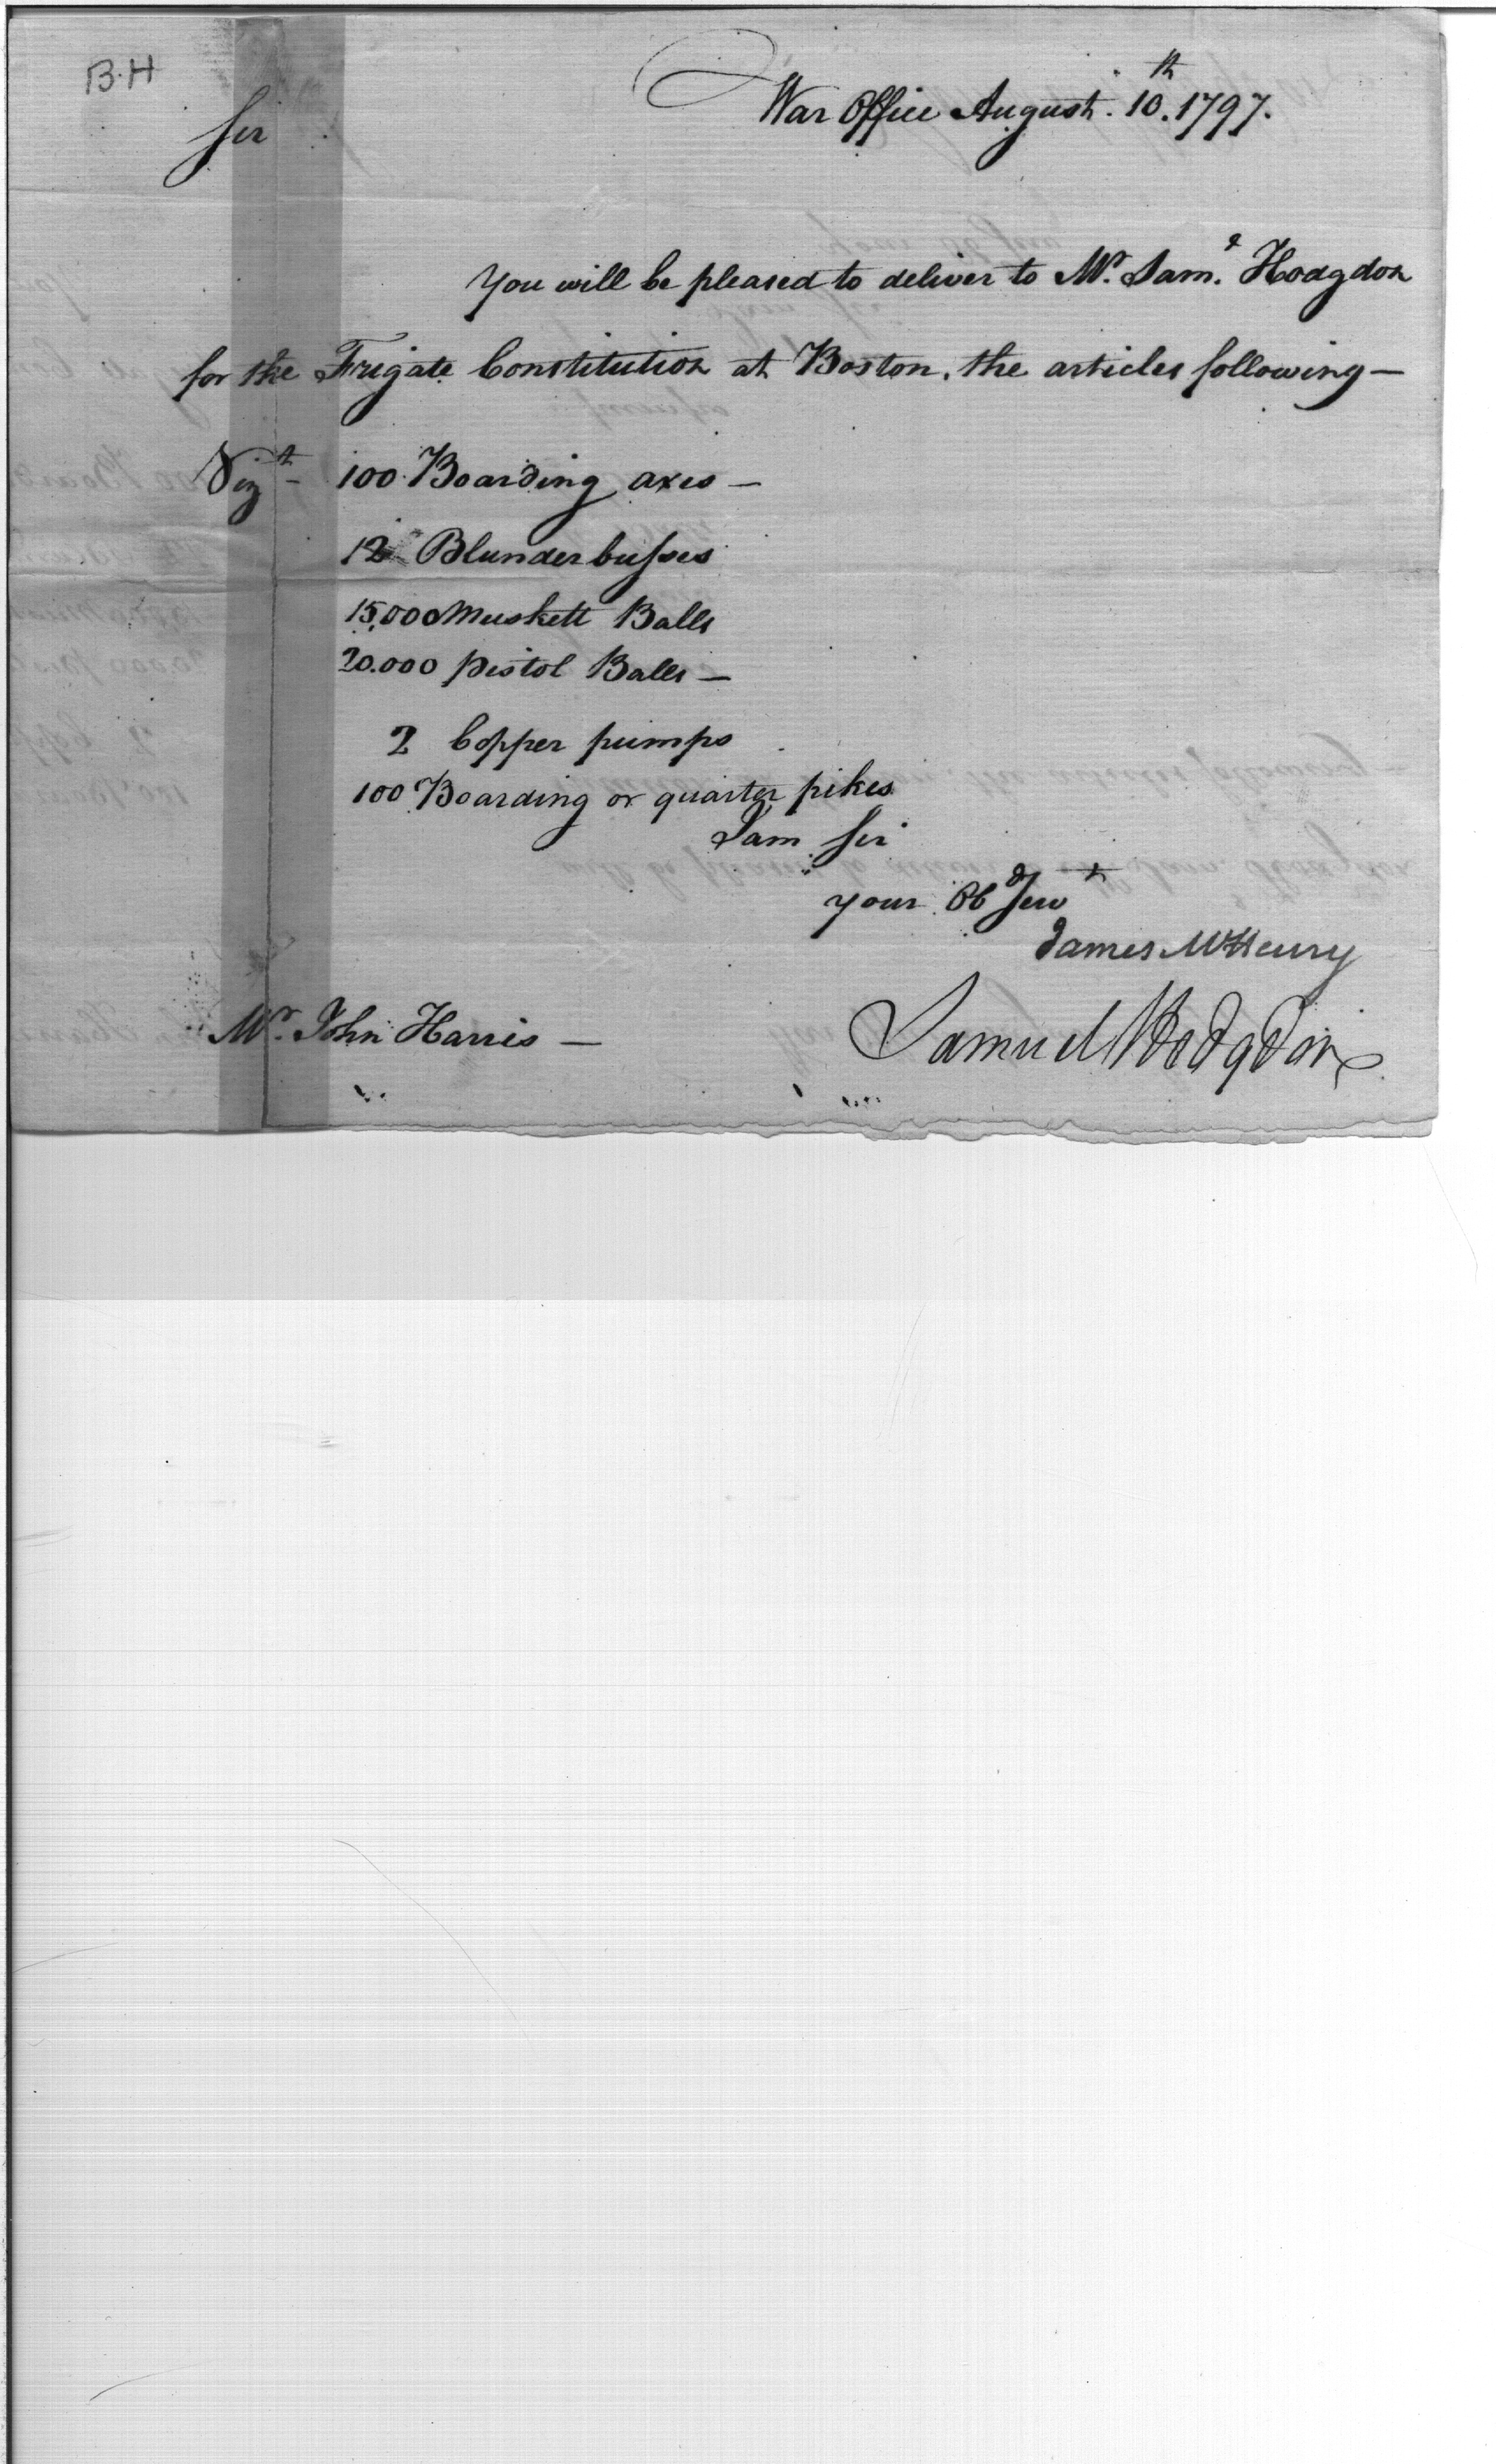 B.H
War Office August. 10.th 1797.
Sir
You will be pleased to deliver to Mr. Sam.l Hodgdon
for the Frigate Constitution at Boston, the articles following —
Vizt — 100 Boarding axes —
12 Blunderbuſses
15,000 Muskett Balls
20.000 Pistol Balls —
2 Copper pumps
100 Boarding or quarter pikes
I am Sir
your Obd Servt
James McHenry
Mr. John Harris —
Samuel Hodgdon